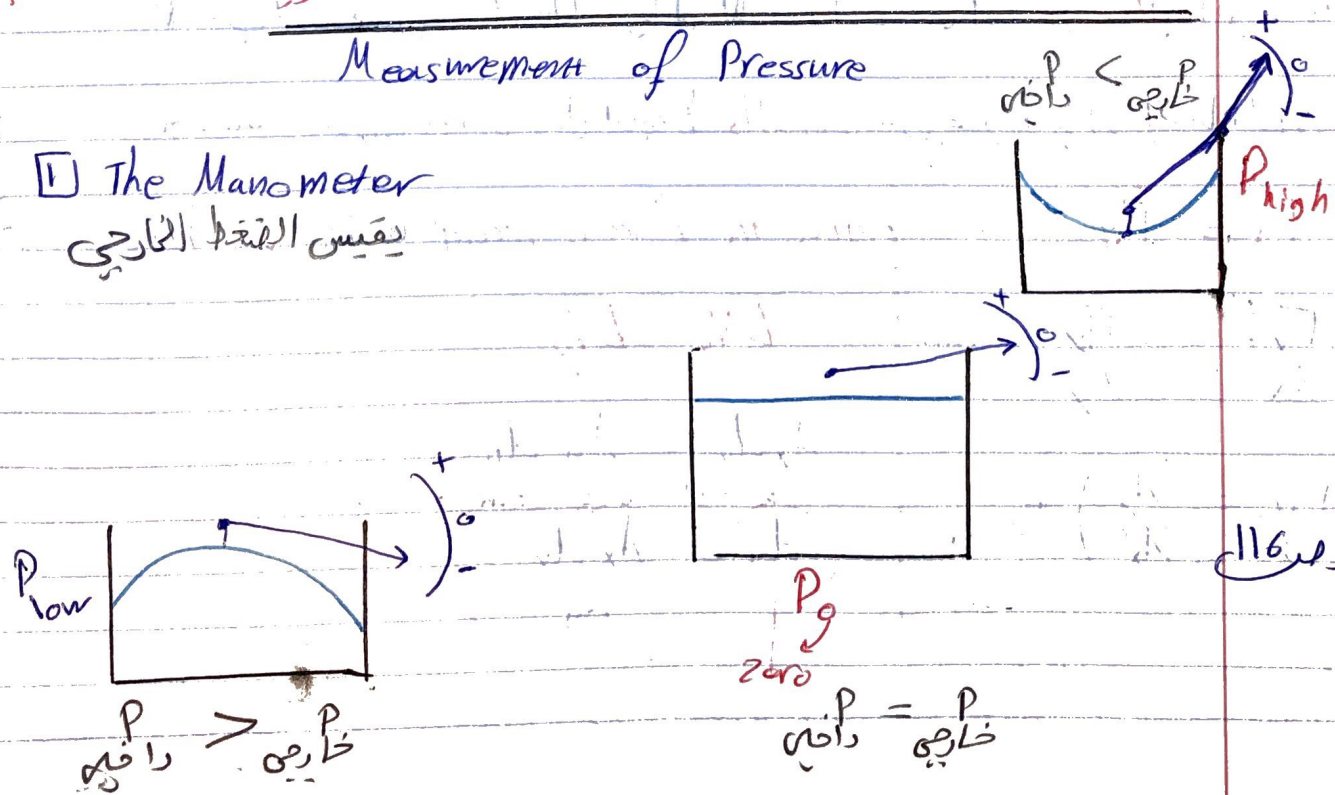 Measurement of Pressure
P داخلي < P خارجي
+
0
-
1 The Manometer
P high
يقيس الضغط الخارجي
+
0
-
+
0
-
P low
ص 116
P g
zero
P داخلي > P خارجي
P داخلي = P خارجي